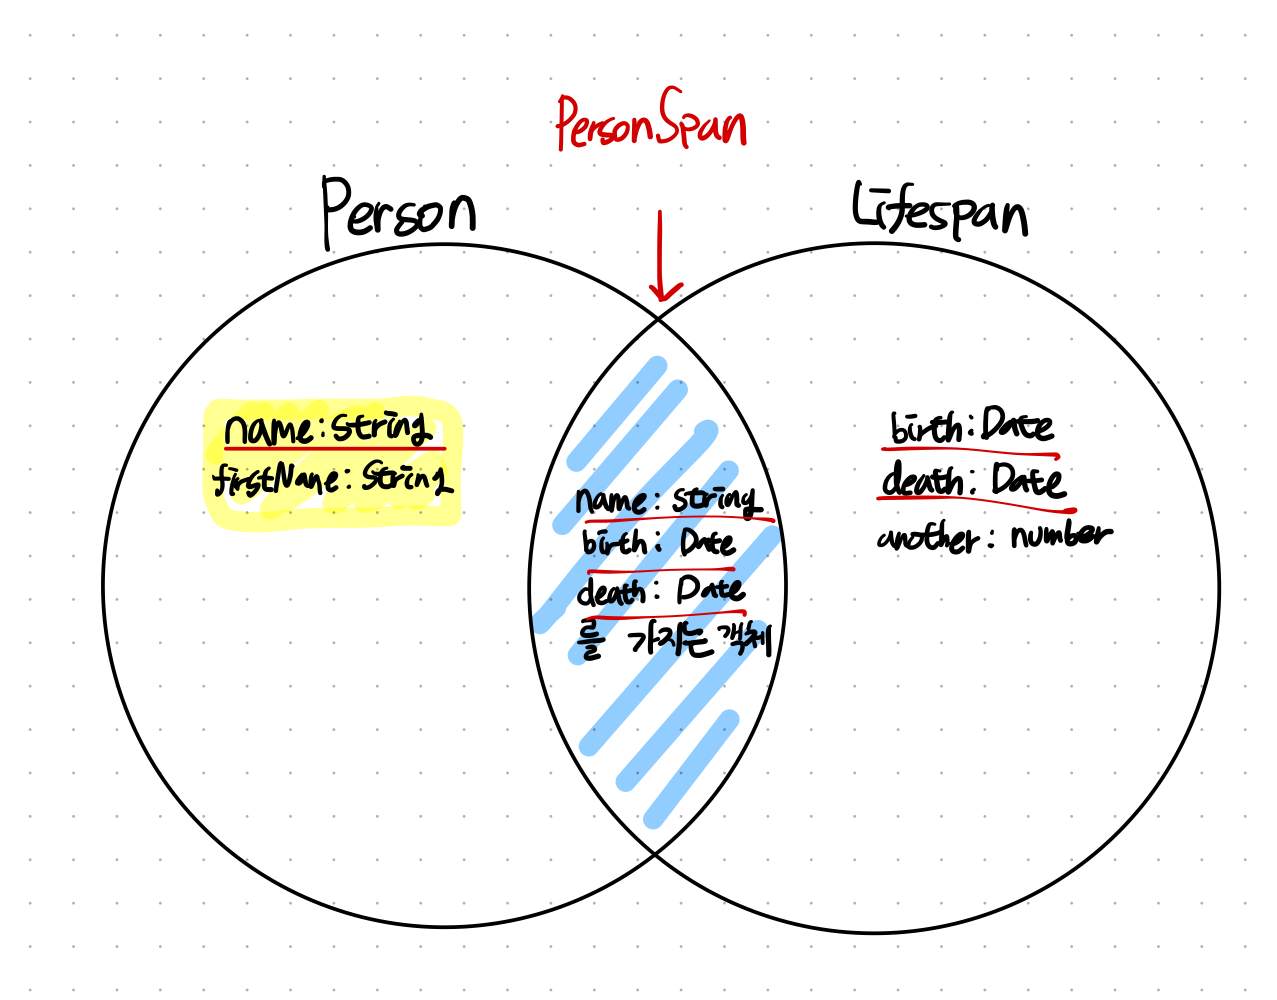 PersonSpan
Person
Lifespan
name: string
firstName: string
name: string
birth: Date
death: Date
를 가지는 객체
birth: Date
death: Date
another: number